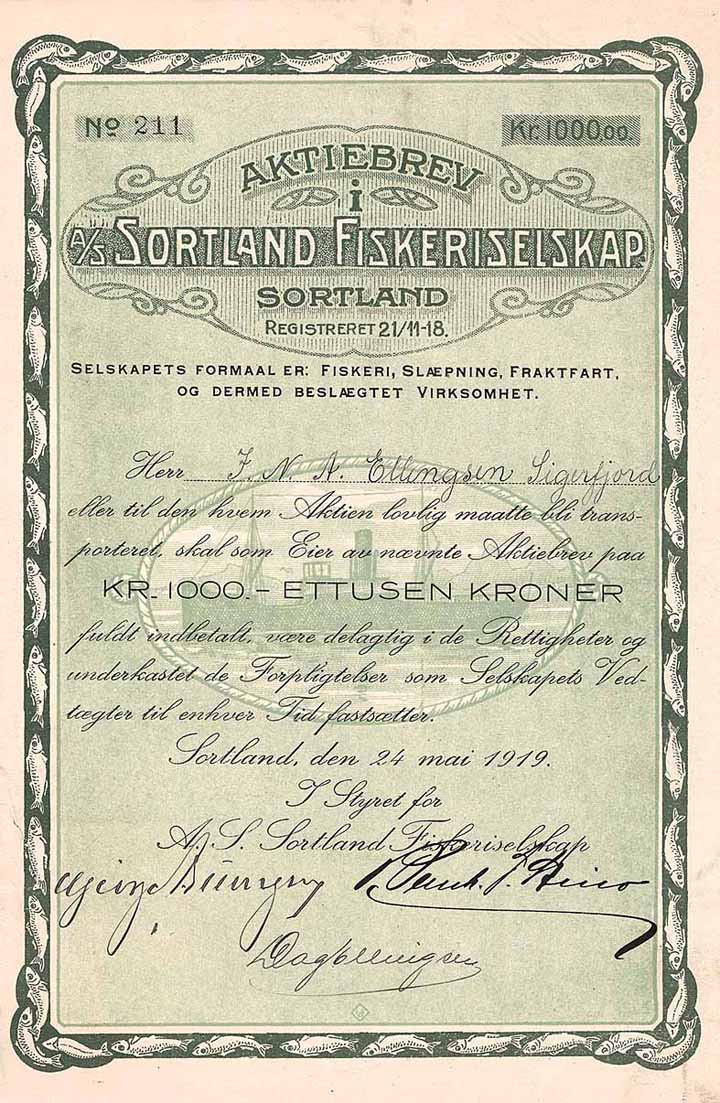 No 211
Kr. 1000,00.
AKTIEBREV
i
A/S SORTLAND FISKERISELSKAP
SORTLAND
REGISTRERET 21/11-18.
SELSKAPETS FORMAAL ER: FISKERI, SLÆPNING, FRAKTFART,
OG DERMED BESLÆGTET VIRKSOMHET.
Herr J. N. A. Ellingsen Sigerfjord
eller til den hvem Aktien lovlig maatte bli trans-
porteret, skal som Eier av nævnte Aktiebrev paa
KR. 1000.- ETTUSEN KRONER
fuldt indbetalt, være delagtig i de Rettigheter og
underkastet de Forpligtelser som Selskapets Ved-
tægter til enhver Tid fastsætter.
Sortland, den 24 mai 1919.
I Styret for
A. S. Sortland Fiskeriselskap
Dag Ellingsen